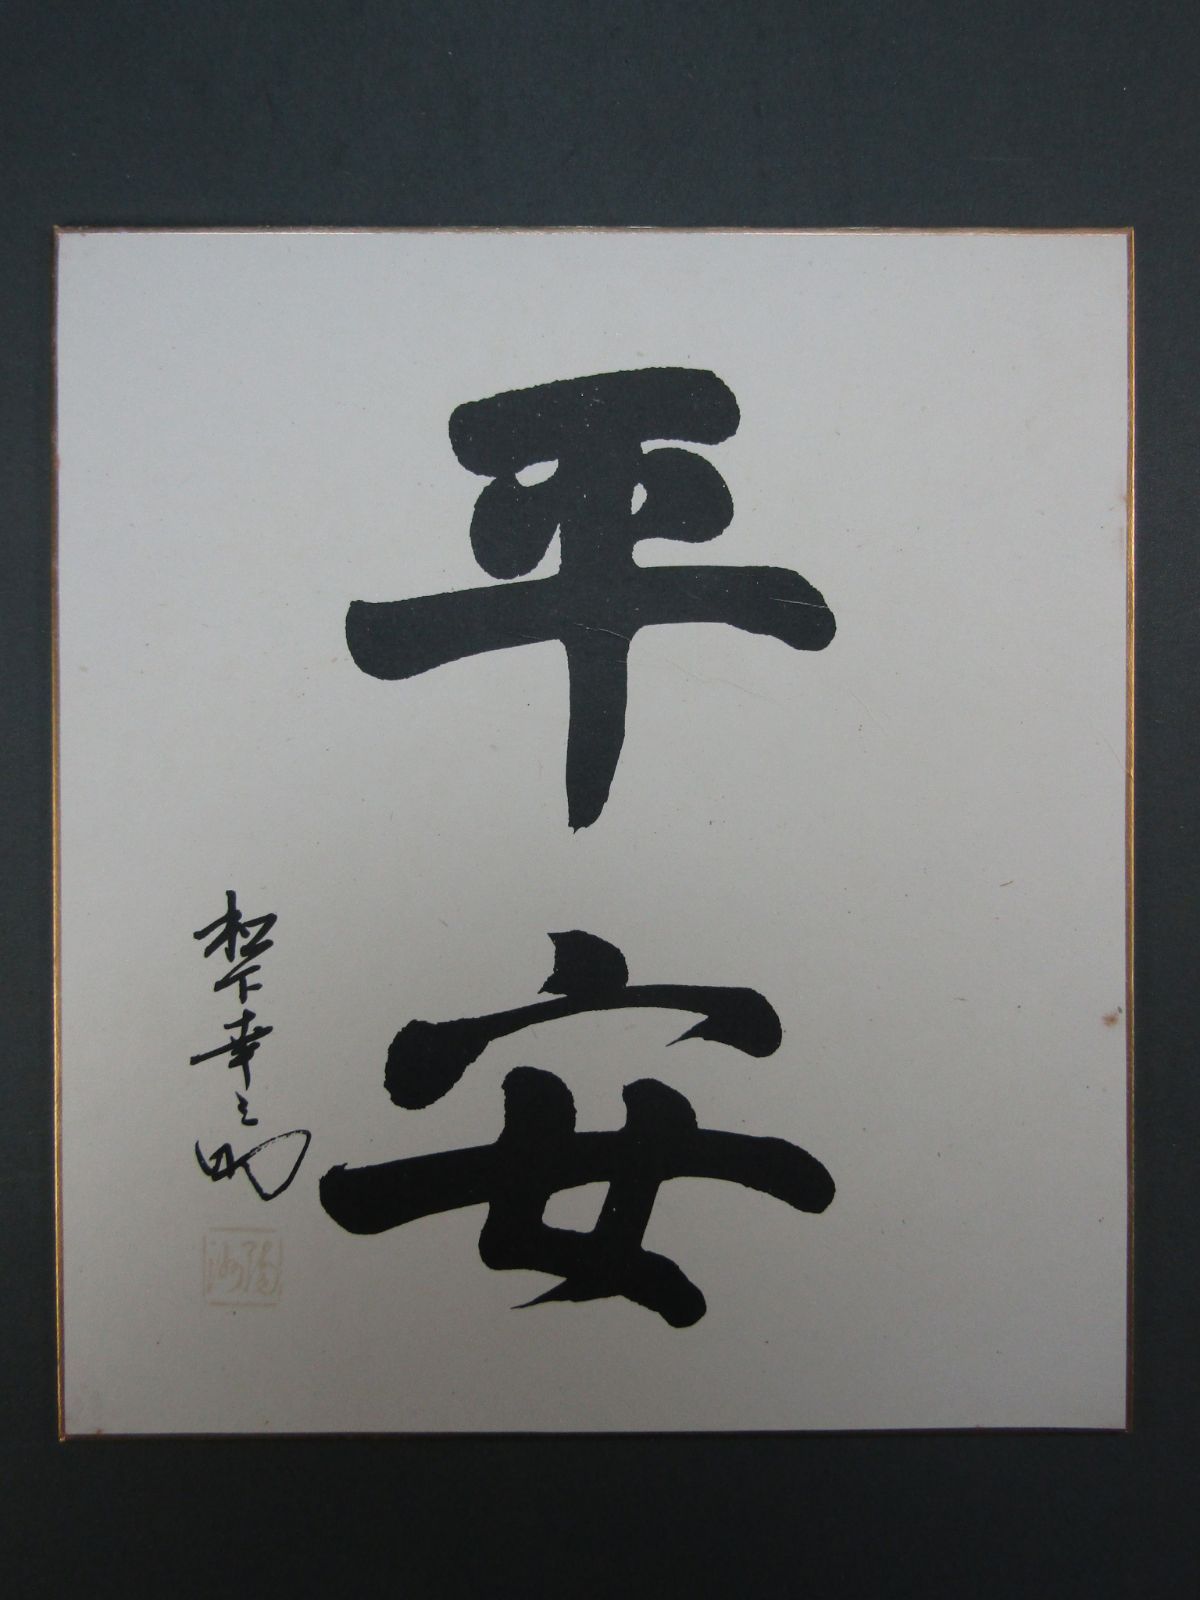 平安
松下幸之助